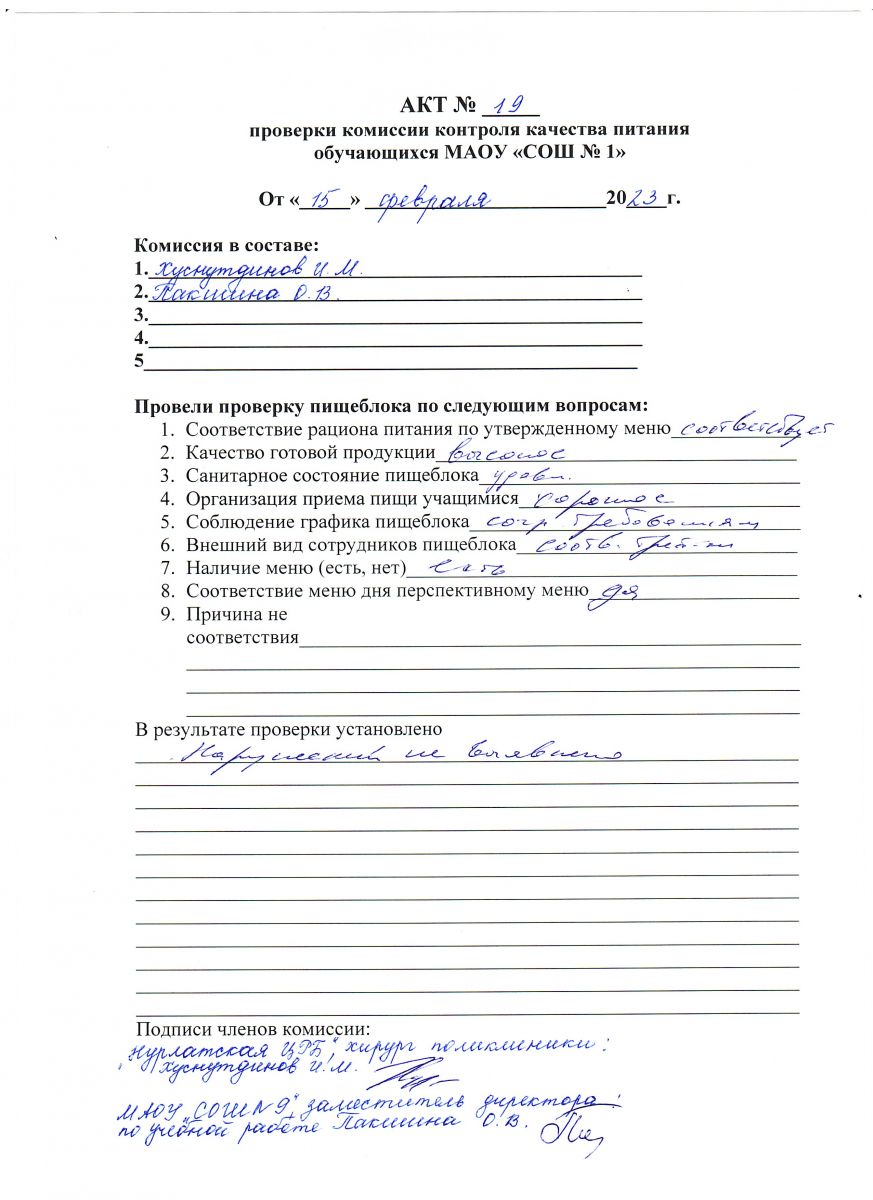 АКТ № 19
проверки комиссии контроля качества питания
обучающихся МАОУ «СОШ № 1»
От «15» февраля 2023 г.
Комиссия в составе:
1. Хуснутдинов И.М.
2. Пакшина О.В.
3.
4.
5
Провели проверку пищеблока по следующим вопросам:
1. Соответствие рациона питания по утвержденному меню соответствует
2. Качество готовой продукции высокое
3. Санитарное состояние пищеблока удовл.
4. Организация приема пищи учащимися хорошее
5. Соблюдение графика пищеблока требованиям
6. Внешний вид сотрудников пищеблока соотв.
7. Наличие меню (есть, нет) есть
8. Соответствие меню дня перспективному меню да
9. Причина не
соответствия
В результате проверки установлено
Нарушений не выявлено
Подписи членов комиссии:
"Нурлатская ЦРБ", хирург поликлиники:
Хуснутдинов И.М.
МАОУ "СОШ №9", заместитель директора:
по учебной работе Пакшина О.В.